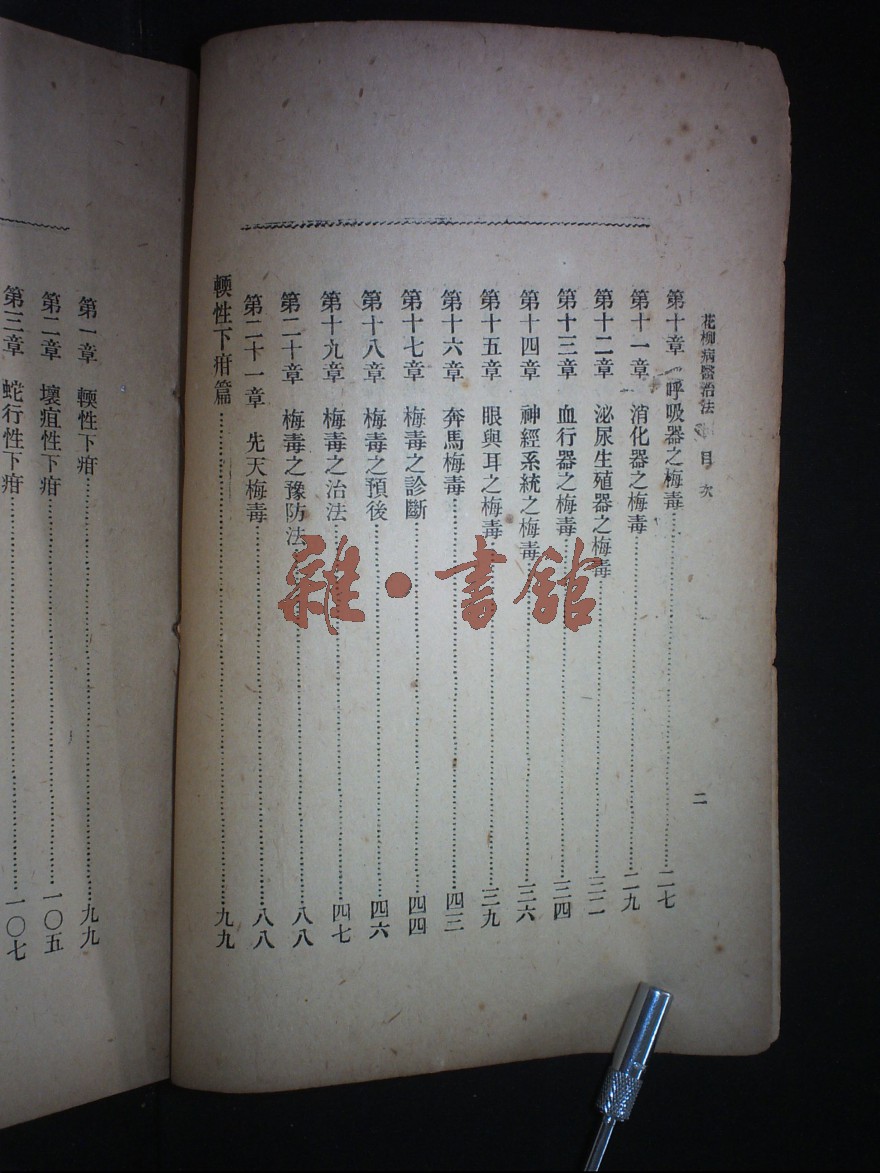 花柳病醫治法 目次
二
第十章 呼吸器之梅毒 二七
第十一章 消化器之梅毒 二九
第十二章 泌尿生殖器之梅毒 三二
第十三章 血行器之梅毒 三四
第十四章 神經系統之梅毒 三六
第十五章 眼與耳之梅毒 三九
第十六章 奔馬梅毒 四三
第十七章 梅毒之診斷 四四
第十八章 梅毒之預後 四六
第十九章 梅毒之治法 四七
第二十章 梅毒之豫防法 八八
第二十一章 先天梅毒 八八
輭性下疳篇 九九
第一章 輭性下疳 九九
第二章 壞疽性下疳 一〇五
第三章 蛇行性下疳 一〇七
雜·書館